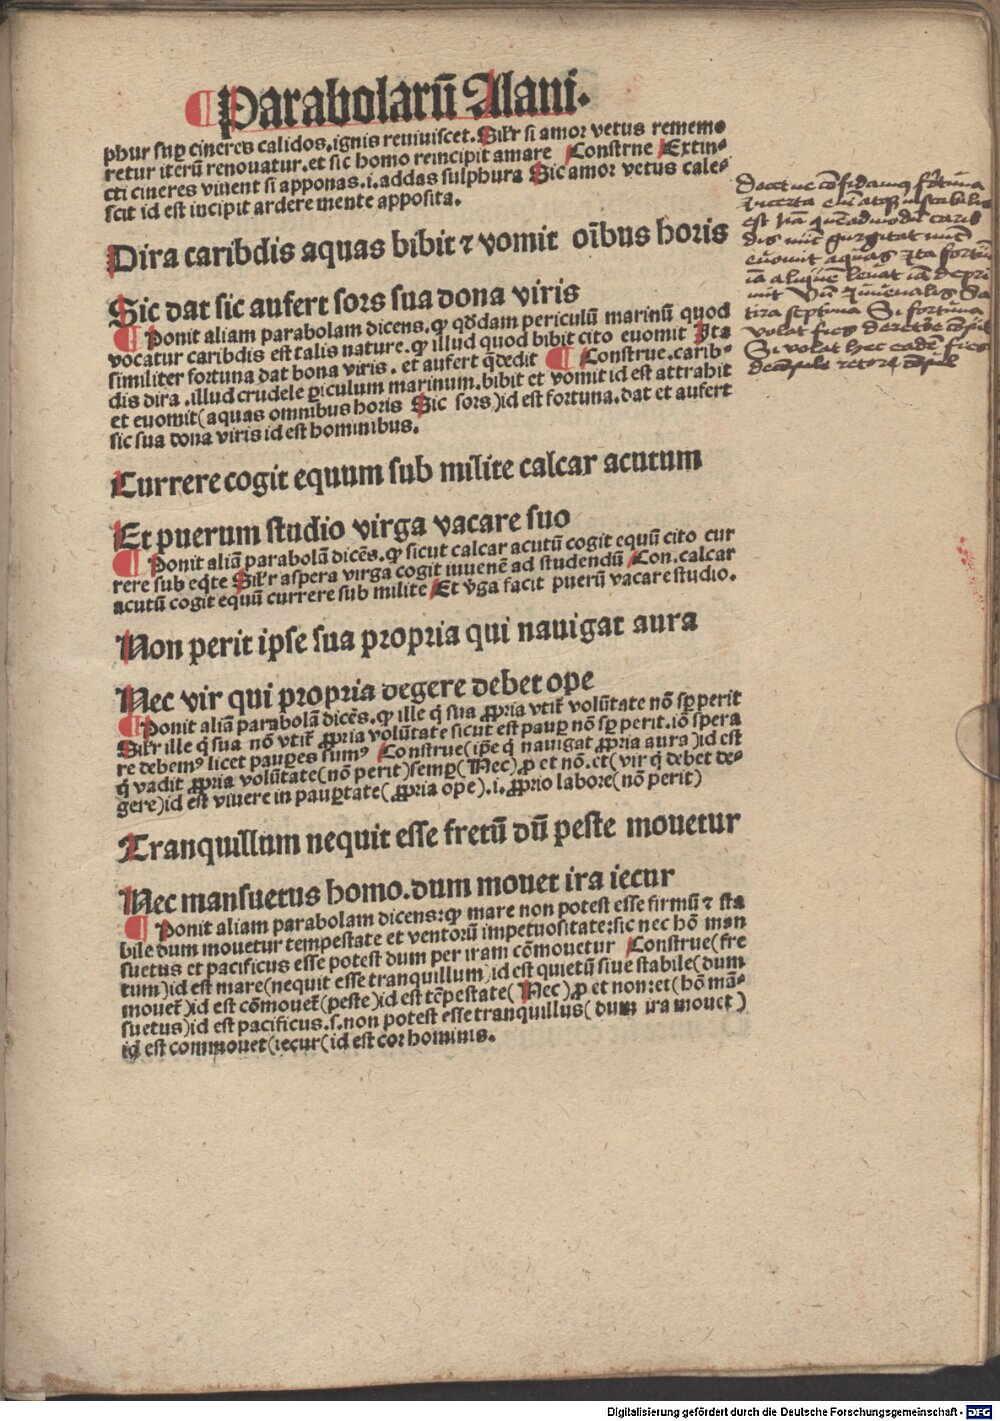 ¶ Parabolarū Alani.
phur suꝑ cineres calidos.ignis reuiuiscet. Silr̄ si amor vetus rememo
retur iterū renouatur.et sic homo reincipit amare Construe Extin-
cti cineres viuent si apponas.i.addas sulphura Sic amor vetus cale-
scit id est incipit ardere mente apposita.
Dira caribdis aquas bibit ⁊ vomit oībus horis
Sic dat sic aufert sors sua dona viris
¶ Ponit aliam parabolam dicens.ꝙ qd̄dam periculū marinū quod
vocatur caribdis est talis nature.ꝙ illud quod bibit cito euomit Ita
similiter fortuna dat bona viris. et aufert q̄ dedit ¶ Construe.carib-
dis dira .illud crudele ꝑiculum marinum.bibit et vomit id est attrahit
et euomit(aquas omnibus horis Sic sors)id est fortuna.dat et aufert
sic sua dona viris id est hominibus.
Currere cogit equum sub milite calcar acutum
Et puerum studio virga vacare suo
¶ Ponit aliā parabolā dicēs.ꝙ sicut calcar acutū cogit equū cito cur
rere sub eq̄te Silr̄ aspera virga cogit iuuenē ad studendū Con.calcar
acutū cogit equū currere sub milite Et v̄ga facit puerū vacare studio.
Non perit ipse sua propria qui nauigat aura
Nec vir qui propria degere debet ope
¶ Ponit aliā parabolā dicēs.ꝙ ille q̄ sua ꝓpria vtit᷑ volūtate nō sꝑ perit
Silr̄ ille q̄ sua nō vtit᷑ ꝓpria volūtate sicut est pauꝑ nō sꝑ perit.iō spera
re debemꝰ licet pauꝑes sumꝰ Construe(ip̄e q̄ nauigat ꝓpria aura)id est
q̄ vadit ꝓpria volūtate(nō perit)semꝑ(Nec)ꝓ et nō.et(vir q̄ debet de-
gere)id est viuere in pauꝑtate(ꝓpria ope).i.ꝓprio labore(nō perit)
Tranquillum nequit esse fretū dū peste mouetur
Nec mansuetus homo.dum mouet ira iecur
¶ Ponit aliam parabolam dicens:ꝙ mare non potest esse firmū ⁊ sta
bile dum mouetur tempestate et ventorū impetuositate:sic nec hō man
suetus et pacificus esse potest dum per iram cōmouetur Construe(fre
tum)id est mare(nequit esse tranquillum)id est quietū siue stabile(dum
mouet᷑)id est cōmouet᷑(peste)id est tēpestate(Nec)ꝓ et non:et(hō mā-
suetus)id est pacificus.s.non potest esse tranquillus(dum ira mouet)
id est commouet(iecur(id est cor hominis.
est
aquas
fortuna
volat
Si volat hec eadē fies